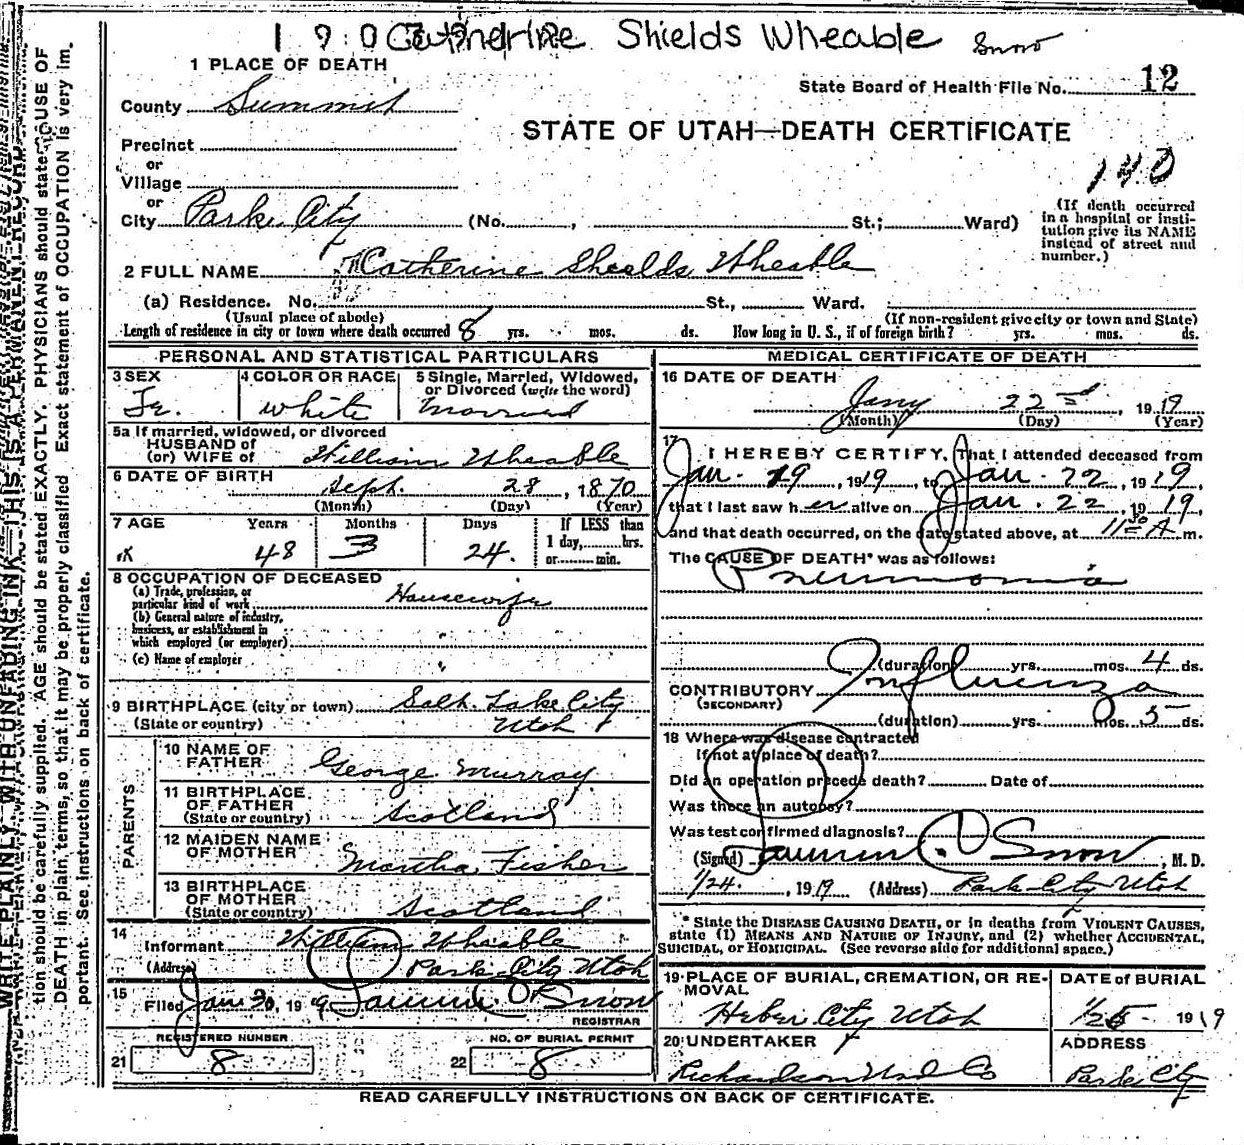 Catherine Shields Wheable Snow
1 PLACE OF DEATH
State Board of Health File No. 12
County Summit
STATE OF UTAH—DEATH CERTIFICATE
Precinct
or
Village
140
or
City Park City (No. , St.; Ward)
(If death occurred
in a hospital or insti-
tution give its NAME
instead of street and
number.)
2 FULL NAME Catherine Shields Wheable
(a) Residence. No. St., Ward.
(Usual place of abode) (If non-resident give city or town and State)
Length of residence in city or town where death occurred 8 yrs. mos. ds. How long in U. S., if of foreign birth? yrs. mos. ds.
PERSONAL AND STATISTICAL PARTICULARS
3 SEX 4 COLOR OR RACE 5 Single, Married, Widowed,
or Divorced (write the word)
Fe. White Married
5a If married, widowed, or divorced
HUSBAND of
(or) WIFE of William Wheable
6 DATE OF BIRTH
Sept. 28, 1870
(Month) (Day) (Year)
7 AGE Years Months Days If LESS than
1 day, hrs.
or min.
48 3 24.
8 OCCUPATION OF DECEASED
(a) Trade, profession, or
particular kind of work Housewife
(b) General nature of industry,
business, or establishment in
which employed (or employer)
(c) Name of employer
9 BIRTHPLACE (city or town) Salt Lake City
(State or country) Utah
PARENTS
10 NAME OF
FATHER George Murray
11 BIRTHPLACE
OF FATHER
(State or country) Scotland
12 MAIDEN NAME
OF MOTHER Martha Fisher
13 BIRTHPLACE
OF MOTHER
(State or country) Scotland
14
Informant William Wheable
(Address) Park City Utah
15
Filed Jan 30, 1919 Snow
REGISTRAR
REGISTERED NUMBER NO. OF BURIAL PERMIT
21 8 22 8
MEDICAL CERTIFICATE OF DEATH
16 DATE OF DEATH
Jany 22nd, 1919
(Month) (Day) (Year)
17 I HEREBY CERTIFY, That I attended deceased from
Jan. 19, 1919, to Jan. 22, 1919,
that I last saw her alive on Jan. 22, 1919,
and that death occurred, on the date stated above, at 11:30 A m.
The CAUSE OF DEATH* was as follows:
Pneumonia
(duration) yrs. mos. 4 ds.
CONTRIBUTORY Influenza
(SECONDARY)
(duration) yrs. mos. 5 ds.
18 Where was disease contracted
if not at place of death?
Did an operation precede death? Date of
Was there an autopsy?
Was test confirmed diagnosis?
(Signed) Snow, M. D.
1/24, 1919 (Address) Park City Utah
* State the DISEASE CAUSING DEATH, or in deaths from VIOLENT CAUSES,
state (1) MEANS AND NATURE OF INJURY, and (2) whether ACCIDENTAL,
SUICIDAL, or HOMICIDAL. (See reverse side for additional space.)
19 PLACE OF BURIAL, CREMATION, OR RE-
MOVAL
Heber City Utah
DATE of BURIAL
1919
20 UNDERTAKER
Richardson Und Co
ADDRESS
Park City
READ CAREFULLY INSTRUCTIONS ON BACK OF CERTIFICATE.
WRITE PLAINLY, WITH UNFADING INK—THIS IS A PERMANENT RECORD
tion should be carefully supplied. AGE should be stated EXACTLY. PHYSICIANS should state CAUSE OF
DEATH in plain terms, so that it may be properly classified. Exact statement of OCCUPATION is very im.
portant. See instructions on back of certificate.